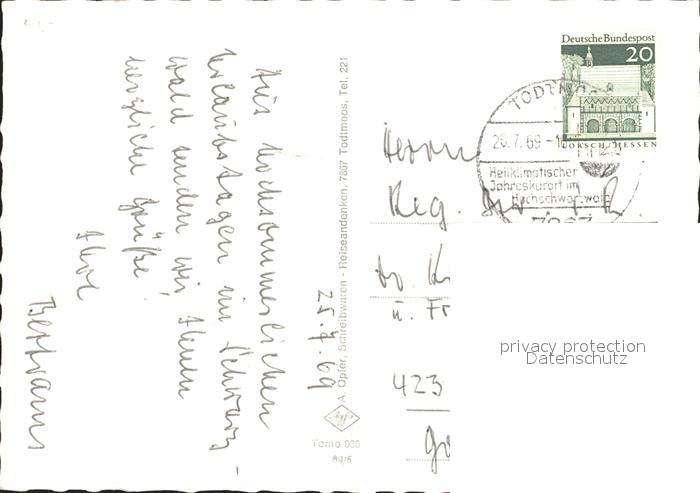 25.7.69
Aus hochsommerlichen
Urlaubstagen im Schwarz-
wald senden wir Ihnen
herzliche Grüße!
Ihre
Bertrams
A. Opfer, Schreibwaren - Reiseandenken, 7867 Todtmoos, Tel. 221
Deutsche Bundespost
20
LORSCH/HESSEN
TODTMOOS
25.7.69
Heilklimatischer
Jahreskurort im
Hochschwarzwald
7867
Herrn
Reg.
Dr.
u. Fr
423
privacy protection
Datenschutz